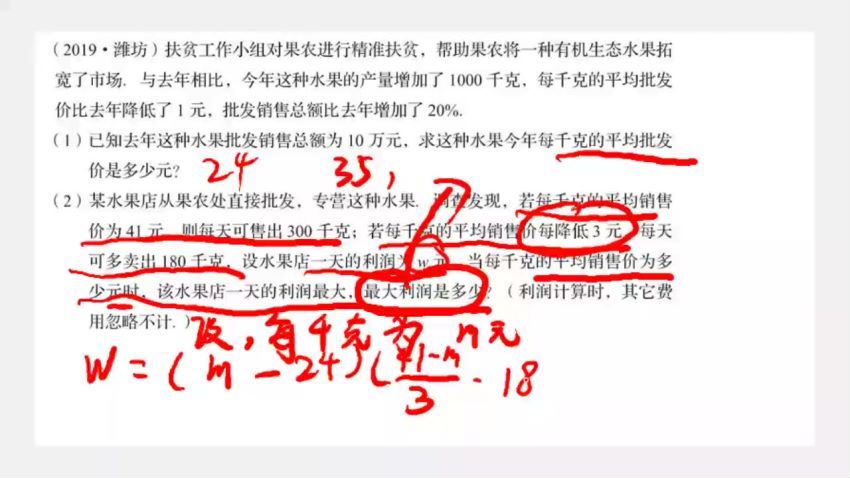 （2019·潍坊）扶贫工作小组对果农进行精准扶贫，帮助果农将一种有机生态水果拓
宽了市场．与去年相比，今年这种水果的产量增加了 1000 千克，每千克的平均批发
价比去年降低了 1 元，批发销售总额比去年增加了 20%.
（1）已知去年这种水果批发销售总额为 10 万元，求这种水果今年每千克的平均批发
价是多少元？
24 35,
（2）某水果店从果农处直接批发，专营这种水果．调查发现，若每千克的平均销售
价为 41 元，则每天可售出 300 千克；若每千克的平均销售价每降低 3 元，每天
可多卖出 180 千克，设水果店一天的利润为 w 元，当每千克的平均销售价为多
少元时，该水果店一天的利润最大，最大利润是多少？（利润计算时，其它费
用忽略不计．）
设，每千克为 m元
W = (m - 24)(41-m/3 · 18